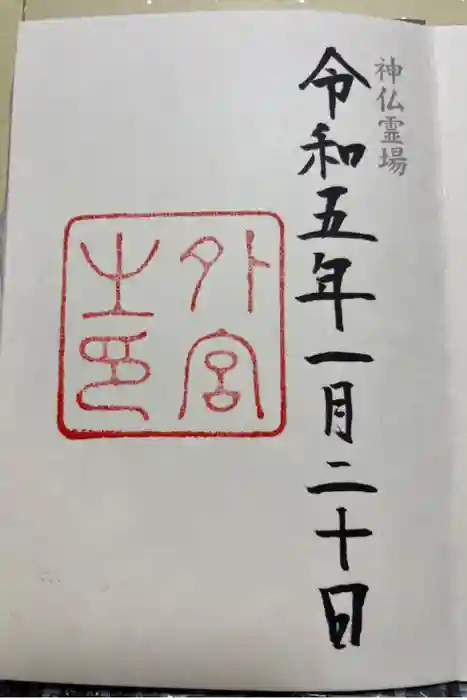 神仏霊場
令和五年一月二十日
外宮
之印